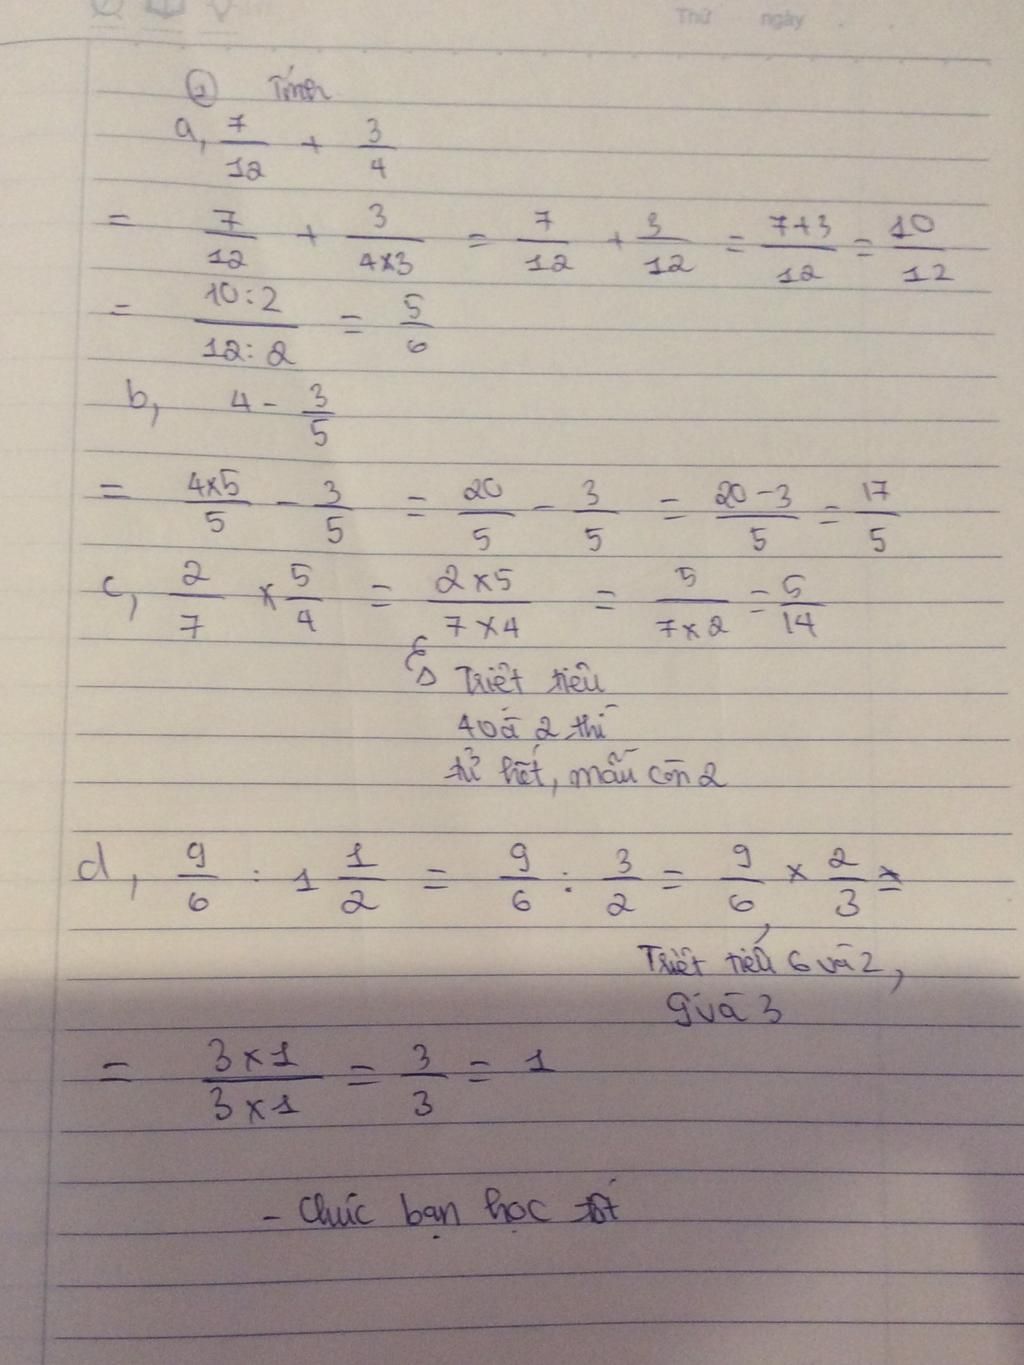 Thứ ngày
② Tính
a, 7/12 + 3/4
= 7/12 + 3/4×3 = 7/12 + 3/12 = 7+3/12 = 10/12
= 10:2/12:2 = 5/6
b, 4 - 3/5
= 4×5/5 - 3/5 = 20/5 - 3/5 = 20-3/5 = 17/5
c, 2/7 × 5/4 = 2×5/7×4 = 5/7×2 = 5/14
Triệt tiêu
4 và 2 thì
tử hết, mẫu còn 2
d, 9/6 : 1 1/2 = 9/6 : 3/2 = 9/6 × 2/3 =
Triệt tiêu 6 và 2,
9 và 3
= 3×1/3×1 = 3/3 = 1
- Chúc bạn học tốt